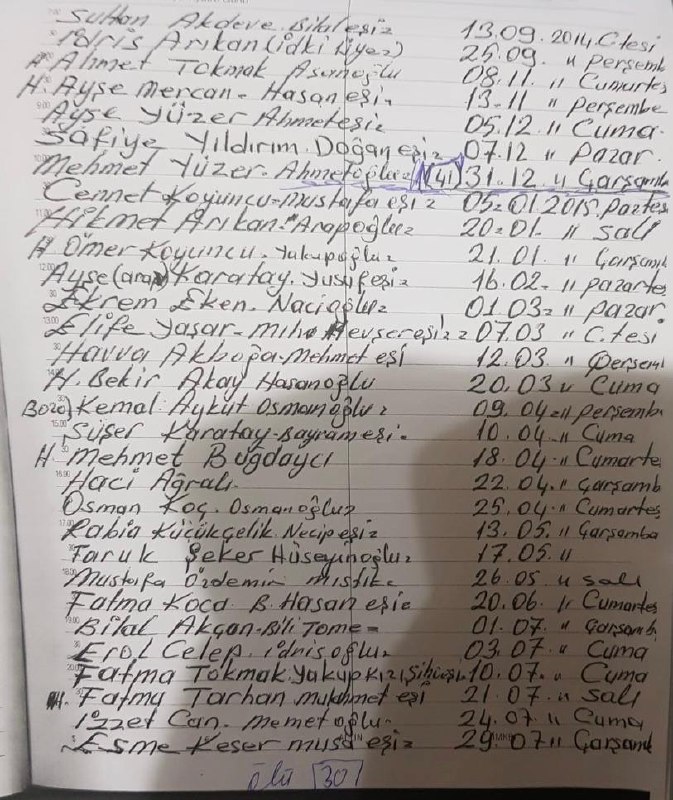 Sultan Akdeve. Bilal eşi= 13.09.2014 C.tesi
İdris Arıkan (idki Liyez) 25.09. " perşemb
H Ahmet Tokmak 08.11. " Cumartes
H. Ayşe Mercan. Hasan eşi= 13.11 " perşembe
Ayşe Yüzer Ahmet eşi= 05.12. " Cuma.
Safiye Yıldırım. Doğan eşi= 07.12 " Pazar.
Mehmet Yüzer. Ahmetoğlu= (41) 31.12. " Çarşamb
Cennet Koyuncu-mustafa eşi= 05.01.2015. Paztes
Hikmet Arıkan. Arapoğlu= 20.01. " Salı
H Ömer Koyuncu. Yakupoğlu= 21.01. " Çarşamb
Ayşe (arap) Karatay. Yusuf eşi= 16.02. " pazartes
Ekrem Eken. Nacioğlu= 01.03= " pazar
Elife Yaşar- 07.03 " C.tesi
Havva Akboğa-Mehmet eşi 12.03. " Perşemb
H. Bekir Akay Hasanoğlu 20.03 " Cuma
Bozo) Kemal Aykut Osmanoğlu= 09.04= " perşemb
Süşer Karatay-Bayram eşi= 10.04. " Cuma
H. Mehmet Buğdaycı 18.04. " Cumarte
Haci Ağralı. 22.04. " Çarşamb
Osman Koç. Osmanoğlu= 25.04. " Cumartes
Rabia Küçükçelik. Necip eşi= 13.05. " Çarşamba
Faruk Şeker Hüseyinoğlu= 17.05. "
Mustafa Özdemir mıstık= 26.05. " Salı
Fatma Koca B. Hasan eşi= 20.06. " Cumartes
Bilal Akçan-Bili Tome= 01.07. " Çarşamb
Erol Celep. idrisoğlu= 03.07. " Cuma
Fatma Tokmak. Yakup kızı 10.07. " Cuma
H. Fatma Tarhan muhammet eşi 21.07. " Salı
İzzet Can. Memetoğlu= 24.07. " Cuma
Esme Keser musa eşi= 29.07 " Çarşamb
ölü 30